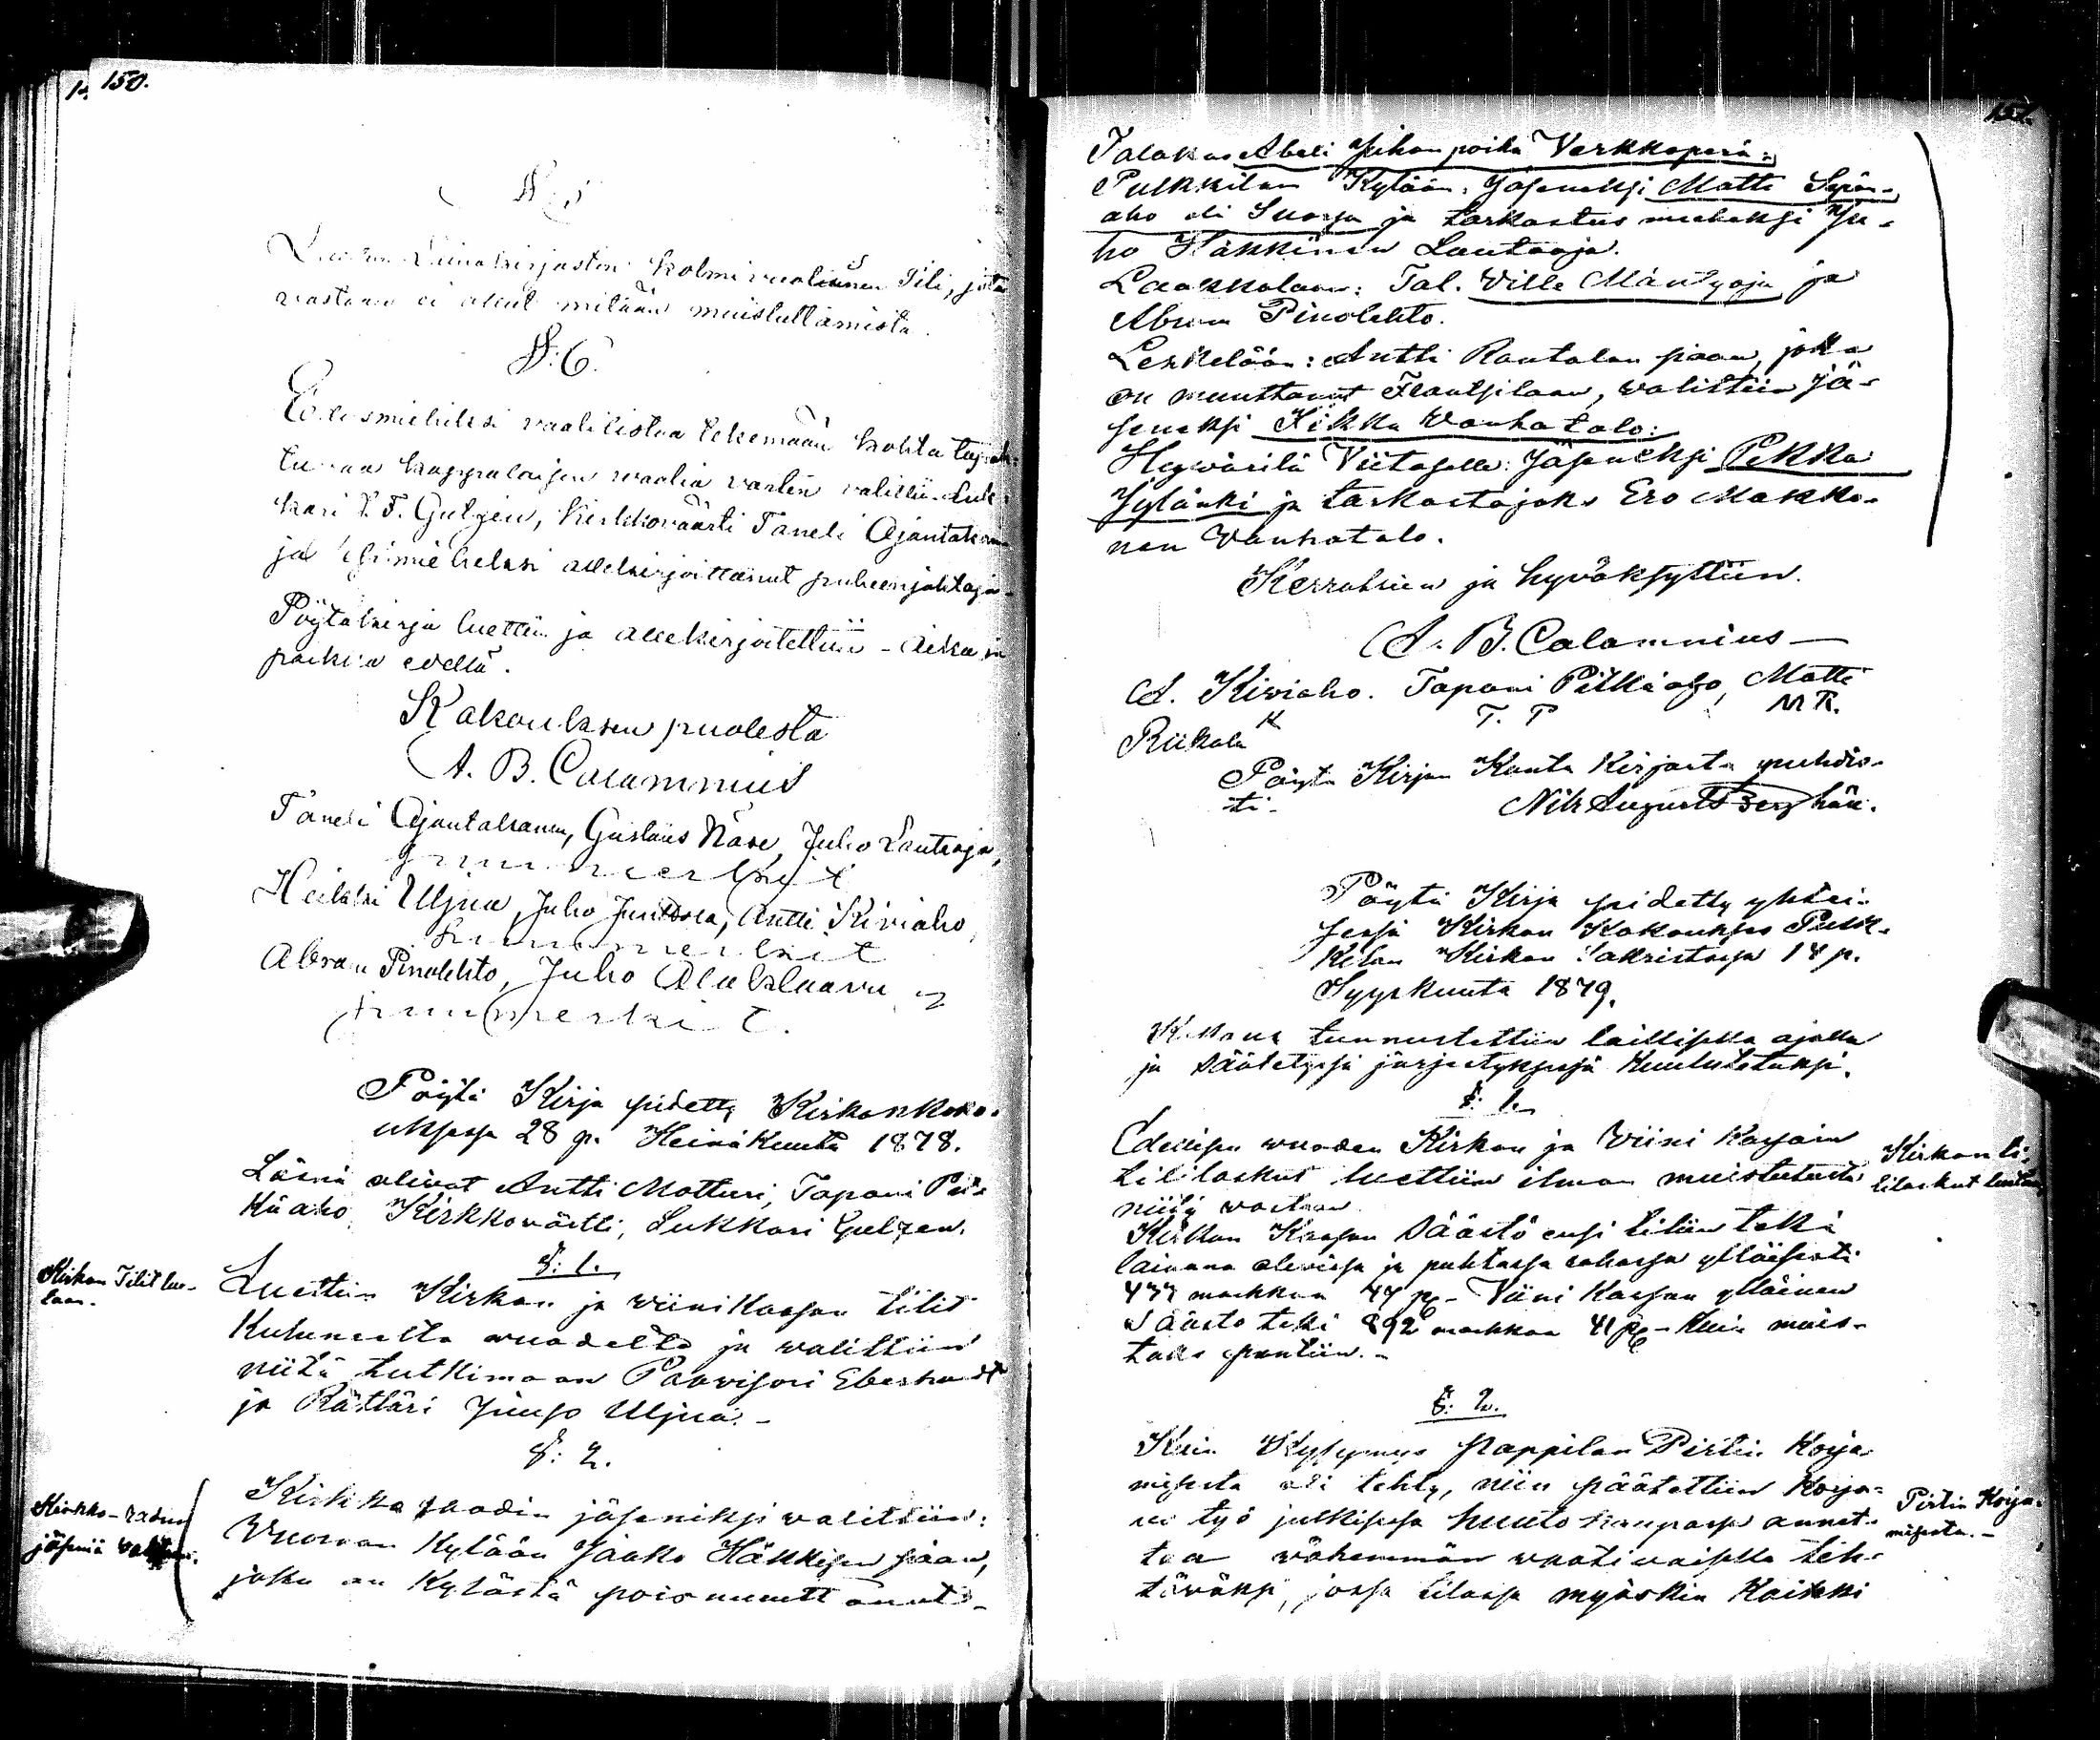 150.
§ 5
Luettiin Lainakirjaston kolmivuotinen Tili, jota
vastaan ei ollut mitään muistuttamista.
§: 6.
Edesmiehiksi vaalilistaa tekemään kohta tapah-
tuvaa kappalaisen waalia varten valittiin Luk-
kari F. Gulzén, Kirkkoväärti Taneli Ajantakanen
ja esimieheksi allekirjoittanut puheenjohtaja
Pöytäkirja luettiin ja allekirjoitettiin - Aika ja
paikka evellä.
Kokouksen puolesta
A. B. Calamnius
Taneli Ajantakanen, Gustavus Näse, Juho Lautaoja,
puumerkit
Heikki Uljua, Juho Junttola, Antti Kiviaho,
puumerkit
Abram Pinolehto, Juho Alaklaavu
puumerkit.
Pöytä Kirja pidetty Kirkonkoko-
uksessa 28 p. Heinä Kuuta 1878.
Läsnä olivat Antti Matturi, Tapani Pit-
käaho, Kirkkovärtti, Lukkari Gulzen.
§: 1.
Kirkon Tilit lue-
taan.
Luettiin Kirkon ja wiini Kassan tilit
Kuluneelta wuodelta ja walittiin
niitä tutkimaan Provisori Eberhardt
ja Rättäri Juuso Uljua. -
§: 2.
Kirkko-radin
jäseniä valitaan.
Kirkko raadin jäseniksi walittiin:
Vuornan Kylään Jaako Häkkisen siaan,
joka on Kylästä pois muuttanut -
151.
Talokas Abeli Juhon poika Verkkoperä:
Pulkkilan Kylään: Jäseneksi Matti Sepän-
aho eli Suorsa ja tarkastus mieheksi Ju-
ho Häkkinen Lautaoja.
Laakkolaan: Tal. Ville Mäntyoja ja
Abram Pinolehto.
Leskelään: Antti Rautalan siaan, joka
on muuttanut Frantsilaan, walittiin jä-
seneksi Heikki Vanhatalo:
Hyvärilä Viitasalle: Jäseneksi Pekka
Jylänki ja tarkastajaks Ero Makko-
nen Vanhatalo.
Kerrattiin ja hyväksyttiin.
A. B. Calamnius —
A. Kiviaho. Tapani Pitkäaho, Matti
K T. P MR.
Riikola
Pöytä Kirjan Kanta Kirjasta puhdis-
ti. Nils August Berghän.
Pöytä Kirja pidetty yhtei-
sessä Kirkon Kokouksessa Pulk-
kilan Kirkon Sakristossa 14 p.
Syyskuuta 1879.
Kokous tunnustettiin laillisella ajalla
ja säätetyssä järjestyksessä Kuulutetuksi.
§: 1.
Edellisen wuoden Kirkon ja Viini Kassain
tililaskut luettiin ilman muistutusta
niitä wastaan.
Kirkon ti-
lilaskut luetaan
Kirkon Kassan Säästö ensi tiliin teki
lainana olevissa ja puhtassa rahassa ylläisesti
477 markkaa 44 p. - Viini Kassan ylläinen
Säästo teki 892 markkaa 41 p - kuin muis-
taks pantiin. -
§: 2.
Kuin Kysymys Pappilan Pirtin Korja-
misesta oli tehty, niin päätettiin Korja-
us työ julkisessa huuto kaupassa annet-
taa wähemmän waativaiselle teh-
täväksi, jossa tilassa myöskin Kaikki
Pirtin Korja-
misesta. -